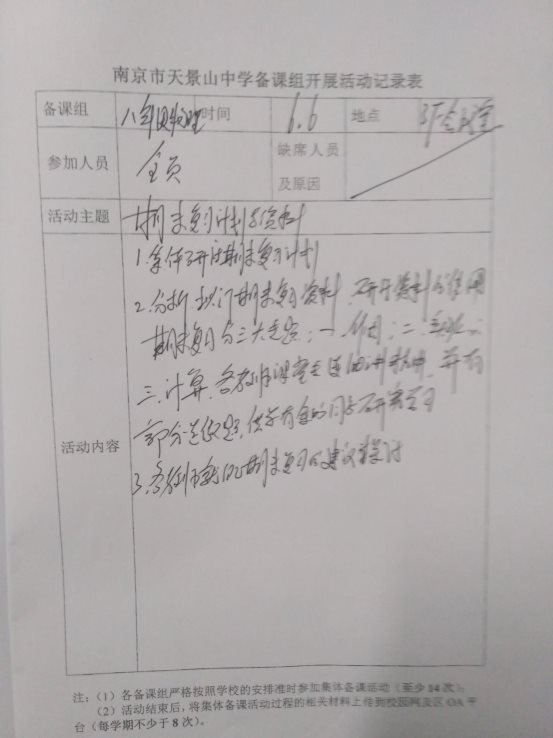 南京市天景山中学备课组开展活动记录表
备课组 八年级物理 时间 6.6 地点
参加人员 全员 缺席人员及原因
活动主题 期末复习计划与资料
活动内容
1.集体研讨期末复习计划
2.分析、择订期末复习资料,研讨资料的使用
期末复习的三大专题:一、作图;二、实验;
三、计算,各教师课堂
部分,供学有余的同学研究学习
3.各教师就期末复习的建议和探讨
注:(1)各备课组严格按照学校的安排准时参加集体备课活动(至少14次);
(2)活动结束后,将集体备课活动过程的相关材料上传到校园网及区OA平
台(每学期不少于8次)。